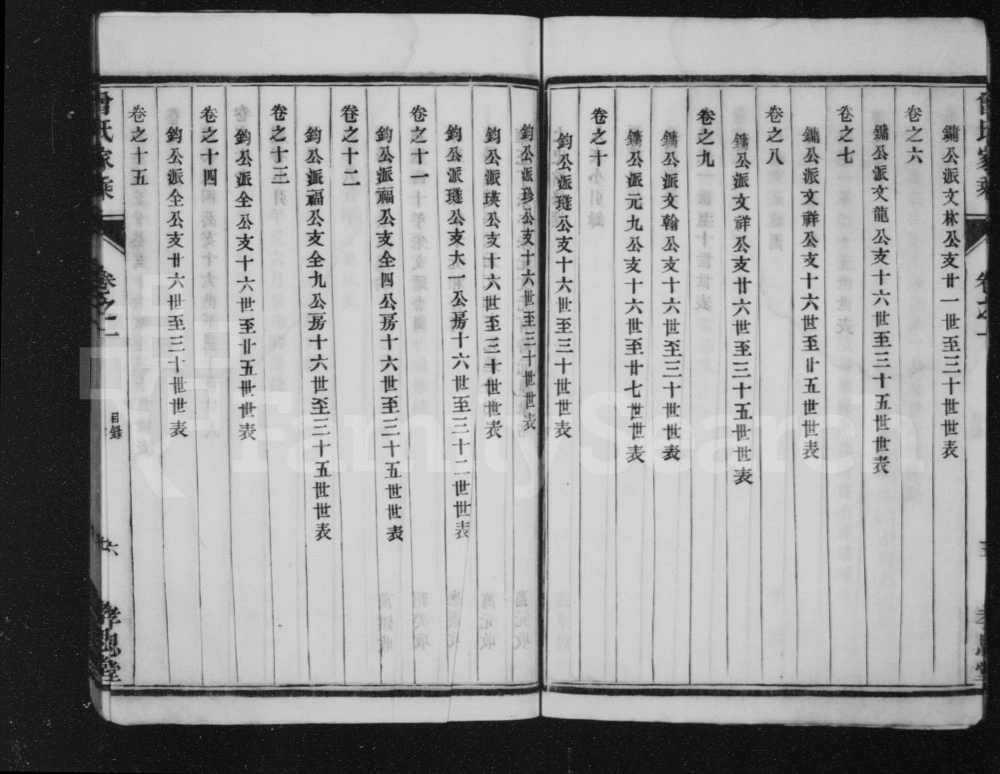 鏞公派文林公支廿一世至三十世世表
卷之六
鏞公派文龍公支十六世至三十五世世表
卷之七
鏞公派文祥公支十六世至廿五世世表
卷之八
鏞公派文祥公支廿六世至三十五世世表
卷之九
鏞公派文翰公支十六世至三十世世表
鏞公派元九公支十六世至廿七世世表
卷之十
鈞公派璲公支十六世至三十世世表
鈞公派珍公支十六世至三十世世表
鈞公派瑛公支十六世至三十世世表
鈞公派璲公支大一公房十六世至三十二世世表
卷之十一
鈞公派福公支全四公房十六世至三十五世世表
卷之十二
鈞公派福公支全九公房十六世至三十五世世表
卷之十三
鈞公派全公支十六世至廿五世世表
卷之十四
鈞公派全公支廿六世至三十世世表
卷之十五
曾氏家乘
卷之一
目錄
六
孝思堂
FamilySearch